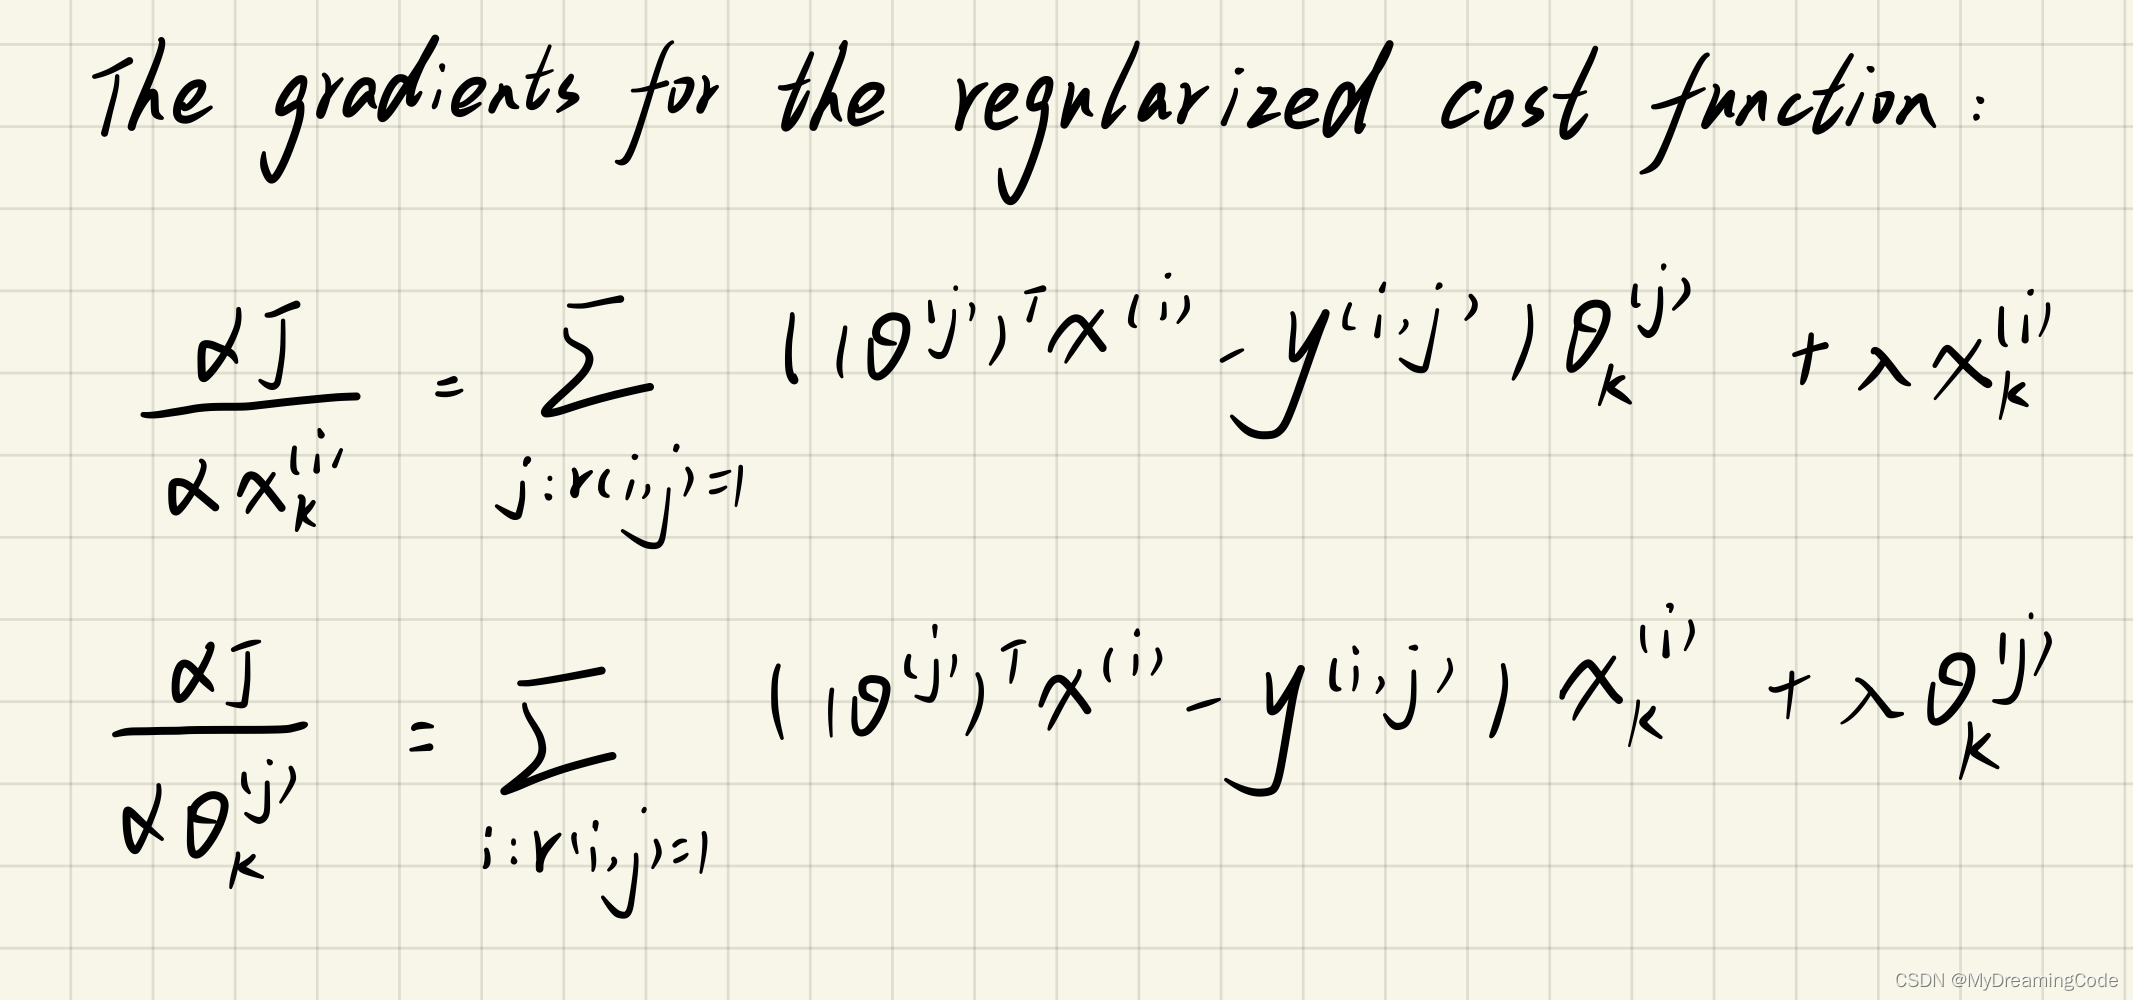 The gradients for the regularized cost function:
αJ/αx_k^(i) = Σ_{j:r(i,j)=1} ((θ^(j))^T x^(i) - y^(i,j)) θ_k^(j) + λx_k^(i)
αJ/αθ_k^(j) = Σ_{i:r(i,j)=1} ((θ^(j))^T x^(i) - y^(i,j)) x_k^(i) + λθ_k^(j)
CSDN @MyDreamingCode